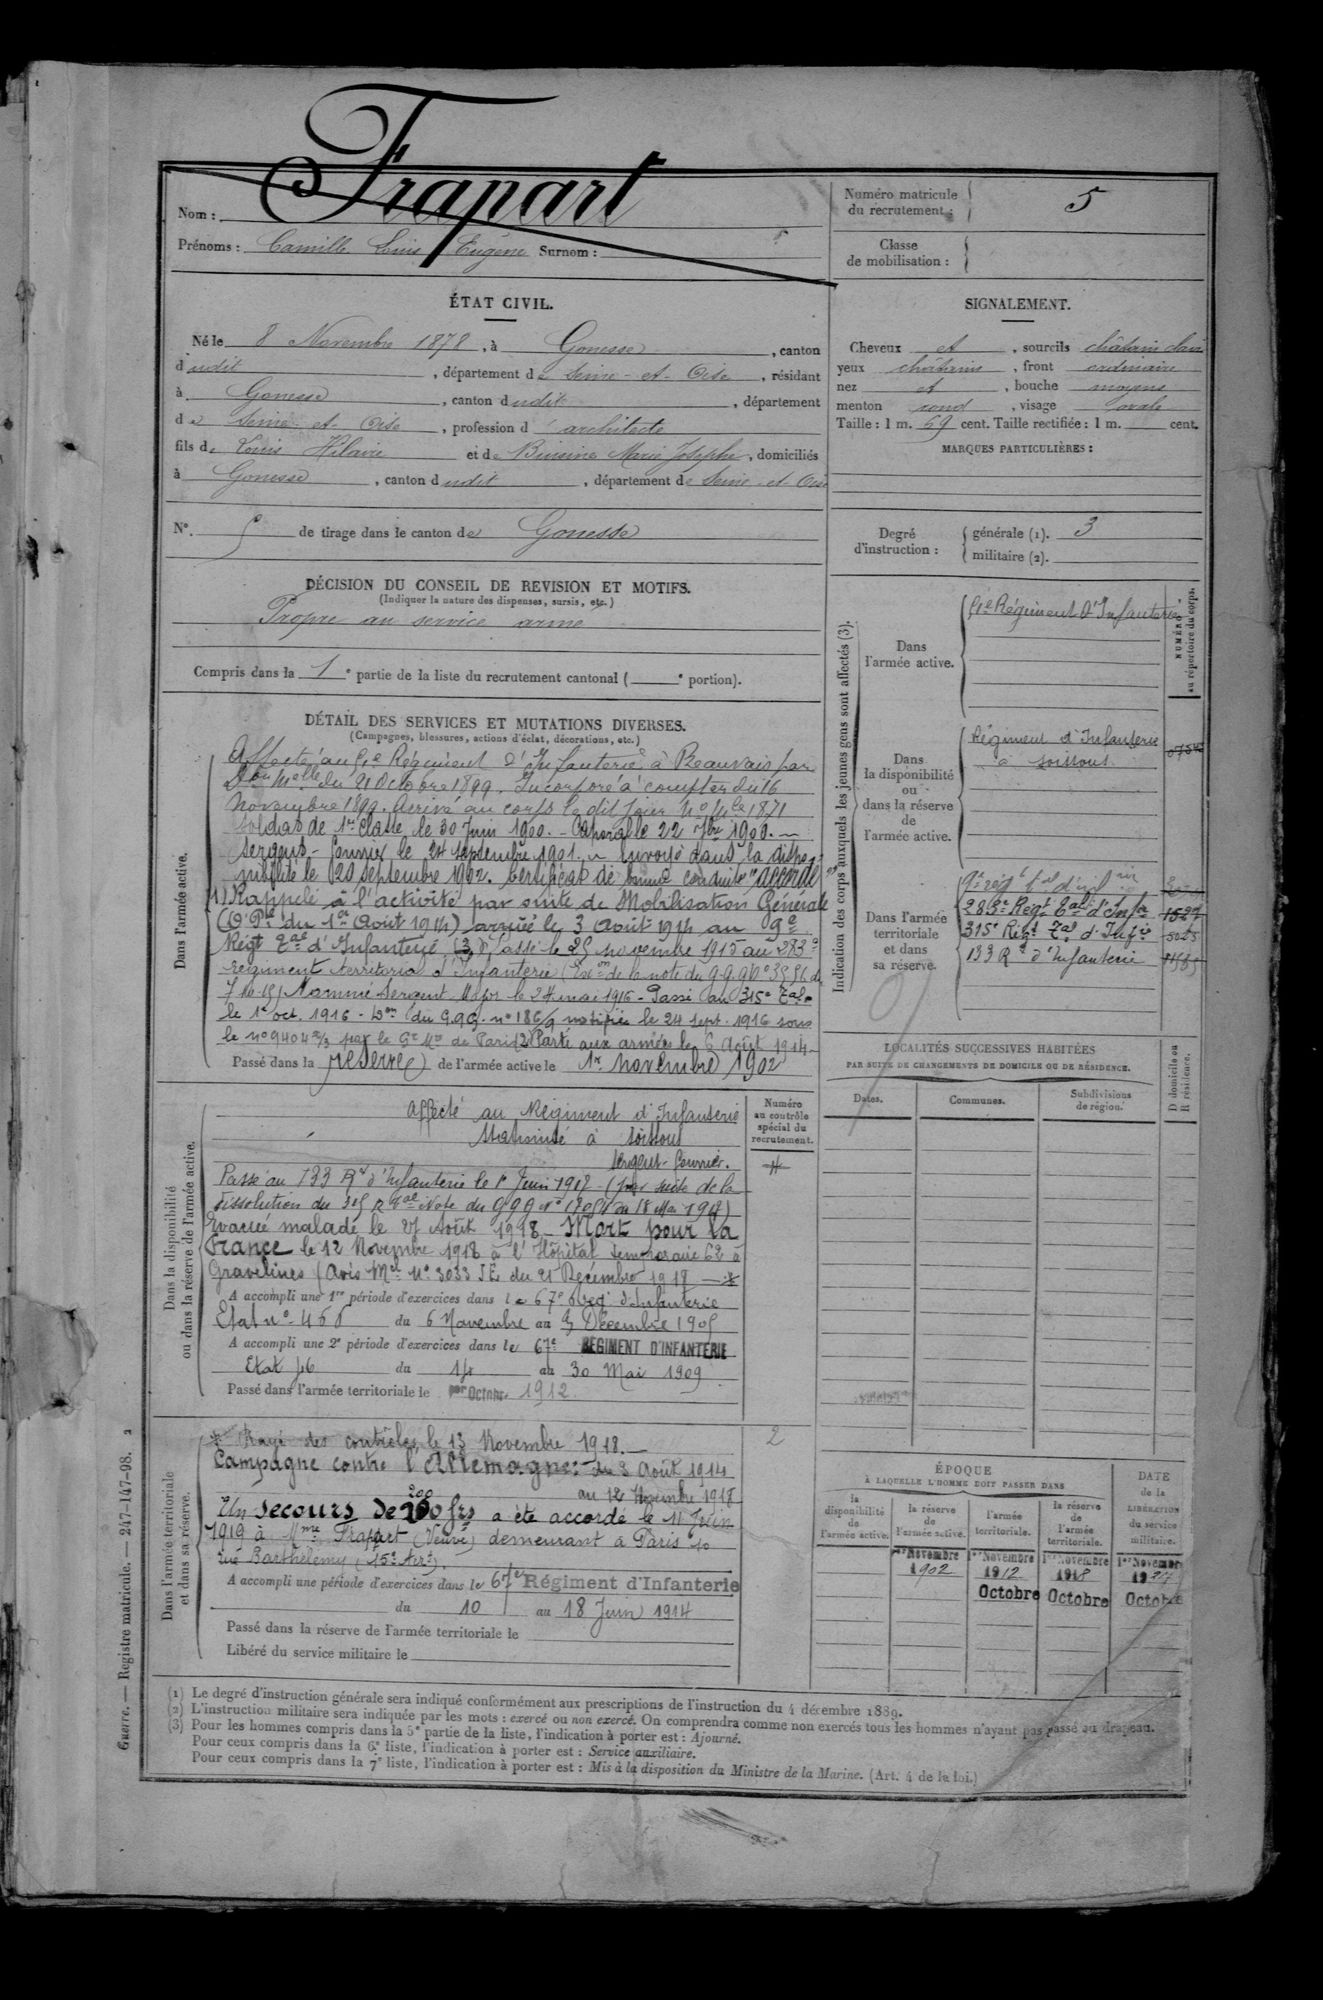 Nom : Frapart
Prénoms : Camille Louis Eugène Surnom :
Numéro matricule du recrutement : 5
Classe de mobilisation :
ÉTAT CIVIL.
Né le 8 Novembre 1878, à Gonesse, canton
dudit, département de Seine-et-Oise, résidant
à Gonesse, canton dudit, département
de Seine-et-Oise, profession d'architecte
fils de Louis Hilaire et de Marie Josephe, domiciliés
à Gonesse, canton dudit, département de Seine-et-Oise
N° 5 de tirage dans le canton de Gonesse
SIGNALEMENT.
Cheveux et, sourcils châtain clair
yeux châtains, front ordinaire
nez et, bouche moyens
menton rond, visage ovale
Taille : 1 m. 69 cent. Taille rectifiée : 1 m. cent.
MARQUES PARTICULIÈRES :
Degré d'instruction : générale (1). 3
militaire (2).
DÉCISION DU CONSEIL DE REVISION ET MOTIFS.
(Indiquer la nature des dispenses, sursis, etc.)
Propre au service armé
Compris dans la 1e partie de la liste du recrutement cantonal ( e portion).
DÉTAIL DES SERVICES ET MUTATIONS DIVERSES.
(Campagnes, blessures, actions d'éclat, décorations, etc.)
Dans l'armée active.
Affecté au Régiment d'Infanterie à Beauvais par
du 21 Octobre 1899. Incorporé à compter du 16
Novembre 1899. Arrivé au corps le dit jour No Mle 1871
Soldat de 1re classe le 30 Juin 1900. Caporal le 22 7bre 1900.
Sergent-fourrier le 24 septembre 1901. Envoyé dans la dispo-
nibilité le 20 septembre 1902. Certificat de bonne conduite "accordé"
(1) Rappelé à l'activité par suite de Mobilisation Générale
(D. Pal du 1er Août 1914) arrivé le 3 Août 1914 au 9e
Régt Tal d'Infanterie (3) Passé le 25 novembre 1915 au 283e
régiment territorial d'Infanterie (Exon de la note du G.Q.G. No 3556 du
7.10.15) Nommé Sergent Major le 24 mai 1916 - Passé au 315e Tal
le 1er oct. 1916 - Don du G.Q.G. no 186/9 notifiée le 24 sept. 1916 sous
le no 9404 2/3 par le Gt Mre de Paris (2) Parti aux armées le 6 Août 1914
Passé dans la réserve de l'armée active le 1er novembre 1902
Indication des corps auxquels les jeunes gens sont affectés (3).
NUMÉRO au répertoire du corps.
Dans l'armée active.
Régiment d'Infanterie
Dans la disponibilité ou dans la réserve de l'armée active.
Régiment d'Infanterie
à Soissons
Dans l'armée territoriale et dans sa réserve.
9e régt tal d'infrie
283e Régt Tal d'Infie
315e Régt Tal d'Infie
133 Rt d'Infanterie
LOCALITÉS SUCCESSIVES HABITÉES
PAR SUITE DE CHANGEMENTS DE DOMICILE OU DE RÉSIDENCE.
Dates. Communes. Subdivisions de région. D domicile ou R résidence.
Dans la disponibilité ou dans la réserve de l'armée active.
Numéro au contrôle spécial du recrutement.
Affecté au Régiment d'Infanterie
stationné à Soissons
Sergent-fourrier.
Passé au 133 Rt d'Infanterie le 1er Juin 1918 - (par suite de la
dissolution du 315 R Tal Note du G.Q.G. du 18 Mai 1918)
Evacué malade le 27 Août 1918 - Mort pour la
France le 12 Novembre 1918 à l'Hôpital temporaire 62 à
Gravelines (Avis Mel No 3033 J.E. du 21 Décembre 1918 - *
A accompli une 1re période d'exercices dans le 67e Reg. d'Infanterie
Etat no 466 du 6 Novembre au 3 Décembre 1905
A accompli une 2e période d'exercices dans le 67e RÉGIMENT D'INFANTERIE
Etat 46 du 14 au 30 Mai 1909
Passé dans l'armée territoriale le 1er Octobre 1912.
Dans l'armée territoriale et dans sa réserve.
* Rayé des contrôles le 13 Novembre 1918.
2
Campagne contre l'Allemagne : du 3 Août 1914
au 12 Novembre 1918
200
Un Secours de frs a été accordé le 11 Juin
1919 à Mme Frapart (Veuve) demeurant à Paris 10
rue Barthélemy (15e Arrt).
A accompli une période d'exercices dans le 67e Régiment d'Infanterie
du 10 au 18 Juin 1914
Passé dans la réserve de l'armée territoriale le
Libéré du service militaire le
ÉPOQUE
À LAQUELLE L'HOMME DOIT PASSER DANS
DATE de la LIBÉRATION du service militaire.
la disponibilité de l'armée active. la réserve de l'armée active. l'armée territoriale. la réserve de l'armée territoriale.
1er Novembre 1902 1er Novembre 1912 1er Novembre 1918 1er Novembre
Octobre Octobre Octobre
(1) Le degré d'instruction générale sera indiqué conformément aux prescriptions de l'instruction du 4 décembre 1889.
(2) L'instruction militaire sera indiquée par les mots : exercé ou non exercé. On comprendra comme non exercés tous les hommes n'ayant pas passé au drapeau.
(3) Pour les hommes compris dans la 5e partie de la liste, l'indication à porter est : Ajourné.
Pour ceux compris dans la 6e liste, l'indication à porter est : Service auxiliaire.
Pour ceux compris dans la 7e liste, l'indication à porter est : Mis à la disposition du Ministre de la Marine. (Art. 4 de la loi.)
Guerre. — Registre matricule. — 247-147-98. 2